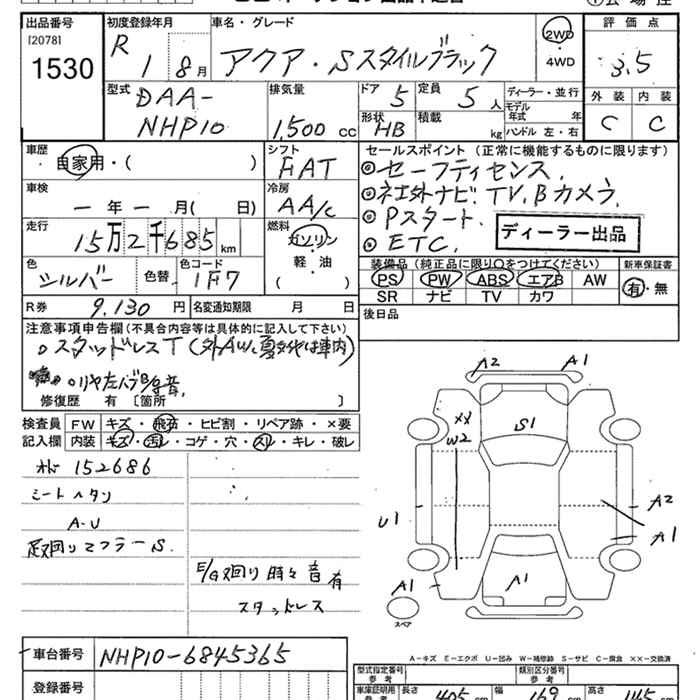 出品番号
[2078]
1530
初度登録年月
R 1 8月
車名・グレード
アクア・Sスタイルブラック
2WD
・
4WD
評価点
3.5
外装 内装
C C
型式
DAA-
NHP10
排気量
1,500 cc
ドア 5
定員 5人
形状 HB
積載 kg
ディーラー・並行
モデル年式 年
ハンドル 左・右
車歴
自家用・( )
シフト
FAT
セールスポイント(正常に機能するものに限ります)
◎セーフティセンス.
◎社外ナビ. TV. Bカメラ.
◎Pスタート.
◎ETC.
ディーラー出品
車検
一年 一月( 日)
冷房
AA/c
走行
15万2千685km
燃料
ガソリン
軽・油
( )
色
シルバー
色替
色コード
1F7
装備品(純正品に限り○をつけてください)
PS PW ABS エアB AW
SR ナビ TV カワ
新車保証書
有・無
R券 9.130円
名変通知期限 月 日
後日品
注意事項申告欄(不具合内容等は具体的に記入して下さい)
○スタッドレスT(外AW. 夏タイヤは車内)
○リヤ左ハブB/g音.
修復歴 有 〔箇所 〕
検査員 FW キズ・飛石・ヒビ割・リペア跡・×要
記入欄 内装 キズ・汚レ・コゲ・穴・スレ・キレ・破レ
152686
シートヘタリ
A-U
足又回りマフラーS.
E/g又回り時々音有
スタッドレス
A2 A1
XX
W2
S1
U1
A2
A1
A1
A1
スペア
A-キズ E-エクボ U-凹み W-補修跡 S-サビ C-腐食 XX-交換済
車台番号 NHP10-6845365
登録番号
型式指定番号
参考
類別区分番号
参考
車庫証明用
長さ 405 cm 幅 169 cm 高さ 145 cm